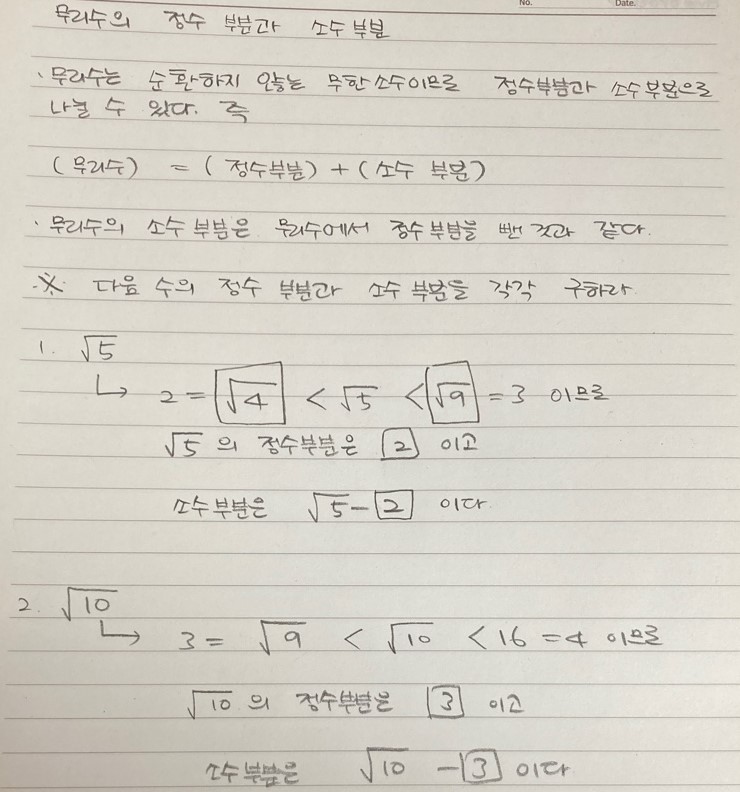 No. Date.
무리수의 정수 부분과 소수 부분
· 무리수는 순환하지 않는 무한소수이므로 정수부분과 소수부분으로
나눌 수 있다. 즉
(무리수) = (정수부분) + (소수 부분)
· 무리수의 소수 부분은 무리수에서 정수부분을 뺀 것과 같다.
※ 다음 수의 정수 부분과 소수 부분을 각각 구하라
1. √5
↳ 2 = √4 < √5 < √9 = 3 이므로
√5 의 정수부분은 2 이고
소수부분은 √5 - 2 이다
2. √10
↳ 3 = √9 < √10 < 16 = 4 이므로
√10 의 정수부분은 3 이고
소수부분은 √10 - 3 이다